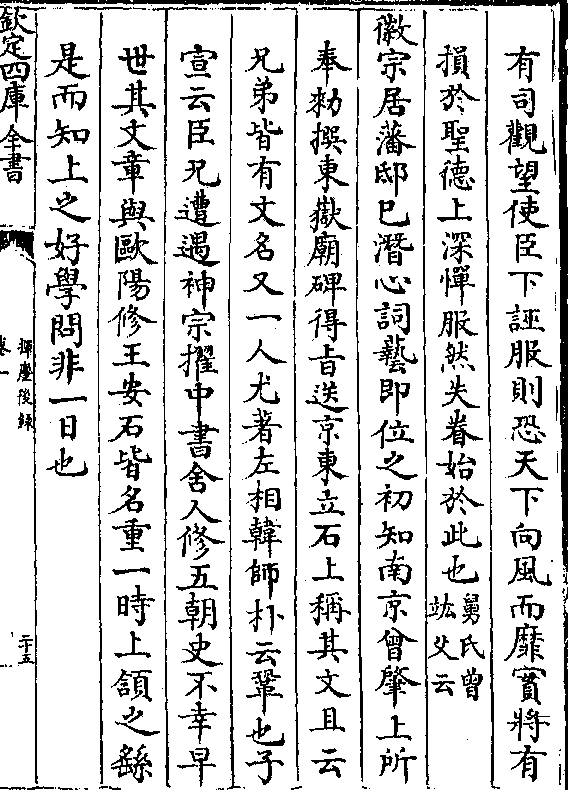 有司觀望使臣下誣服則恐天下向風而靡實將有
損於聖德上深憚服然失眷始於此也舅氏曾
竑父云
徽宗居藩邸已潛心詞藝即位之初知南京曾肇上所
奉勑撰東嶽廟碑得旨送京東立石上稱其文且云
兄弟皆有文名又一人尤著左相韓師朴云鞏也子
宣云臣兄遭遇神宗擢中書舍人修五朝史不幸早
世其文章與歐陽修王安石皆名重一時上頷之繇
是而知上之好學問非一日也
欽定四庫全書
揮麈後錄
卷一
二十五